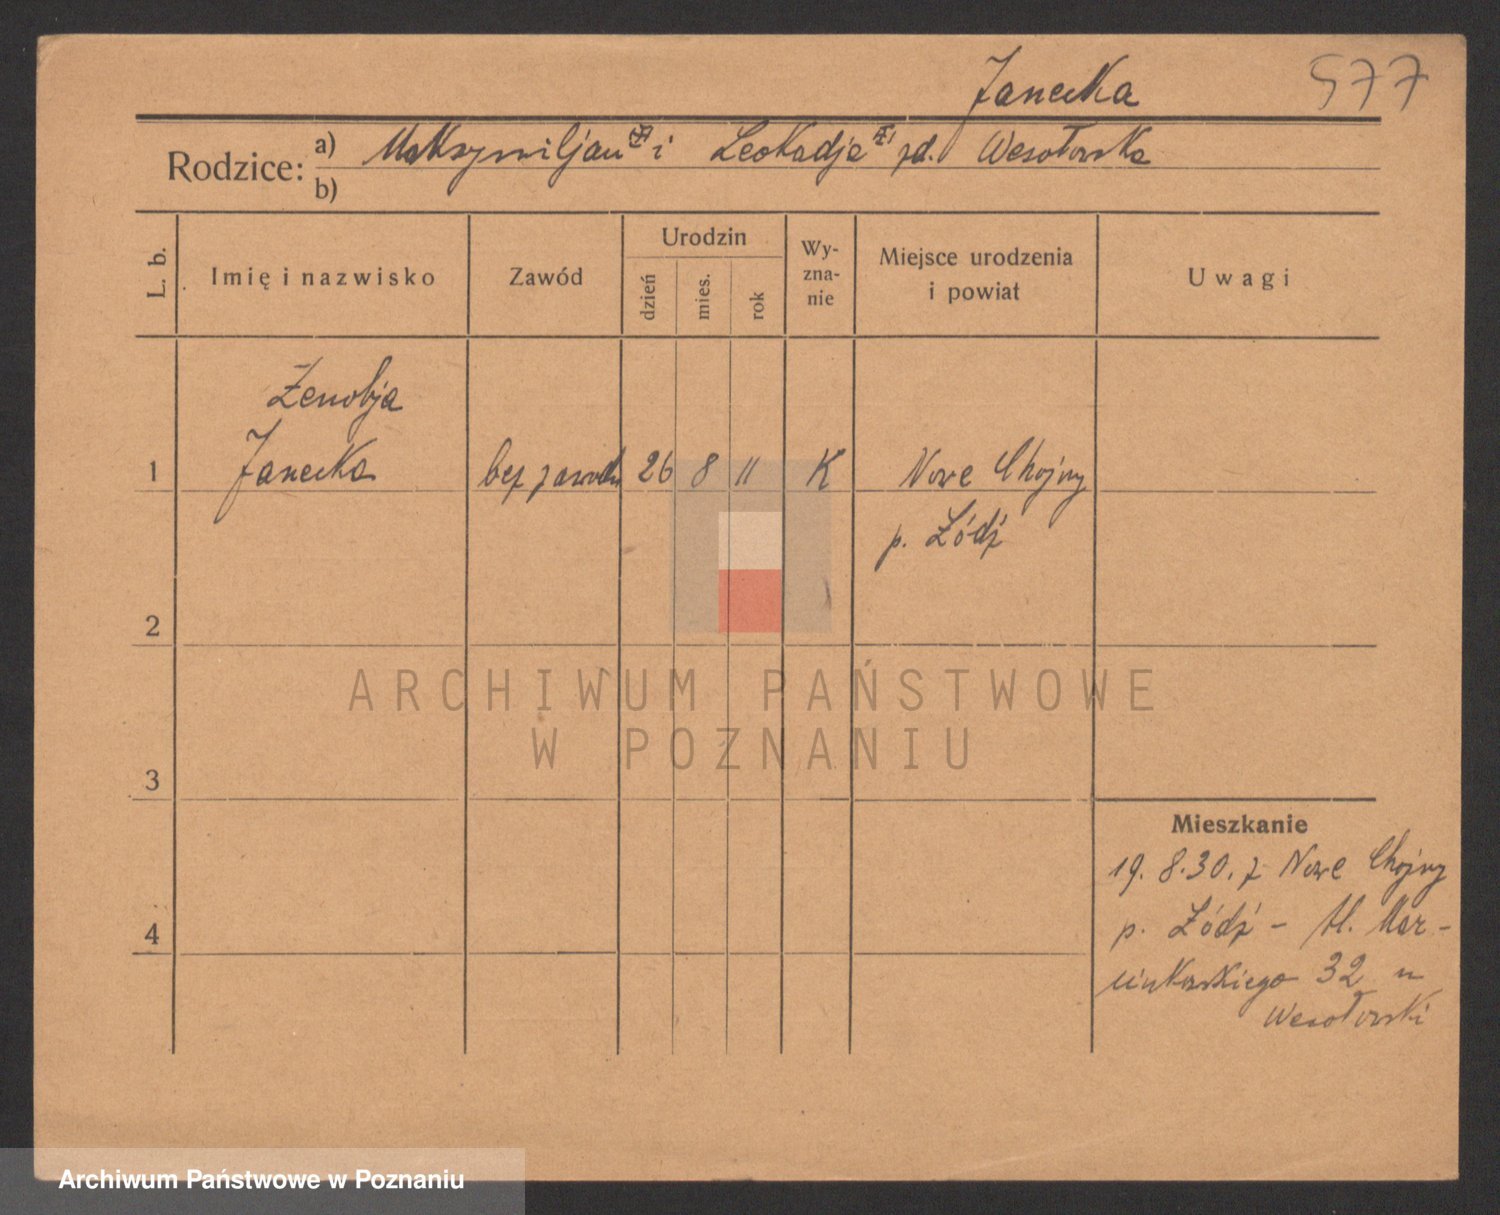 Janecka 577
Rodzice: a) Maksymiljan i Leokadja zd. Wesołowska
b)
L. b.
Imię i nazwisko
Zawód
Urodzin
dzień
mies.
rok
Wy-
zna-
nie
Miejsce urodzenia
i powiat
Uwagi
Zenobja
1 Janecka bez zawodu 26 8 11 K Nowe Chojny
p. Łódź
2
ARCHIWUM PAŃSTWOWE
W POZNANIU
3
Mieszkanie
19. 8. 30. z Nowe Chojny
p. Łódź - Mar-
4
cinkowskiego 32 u
Wesołowski
Archiwum Państwowe w Poznaniu